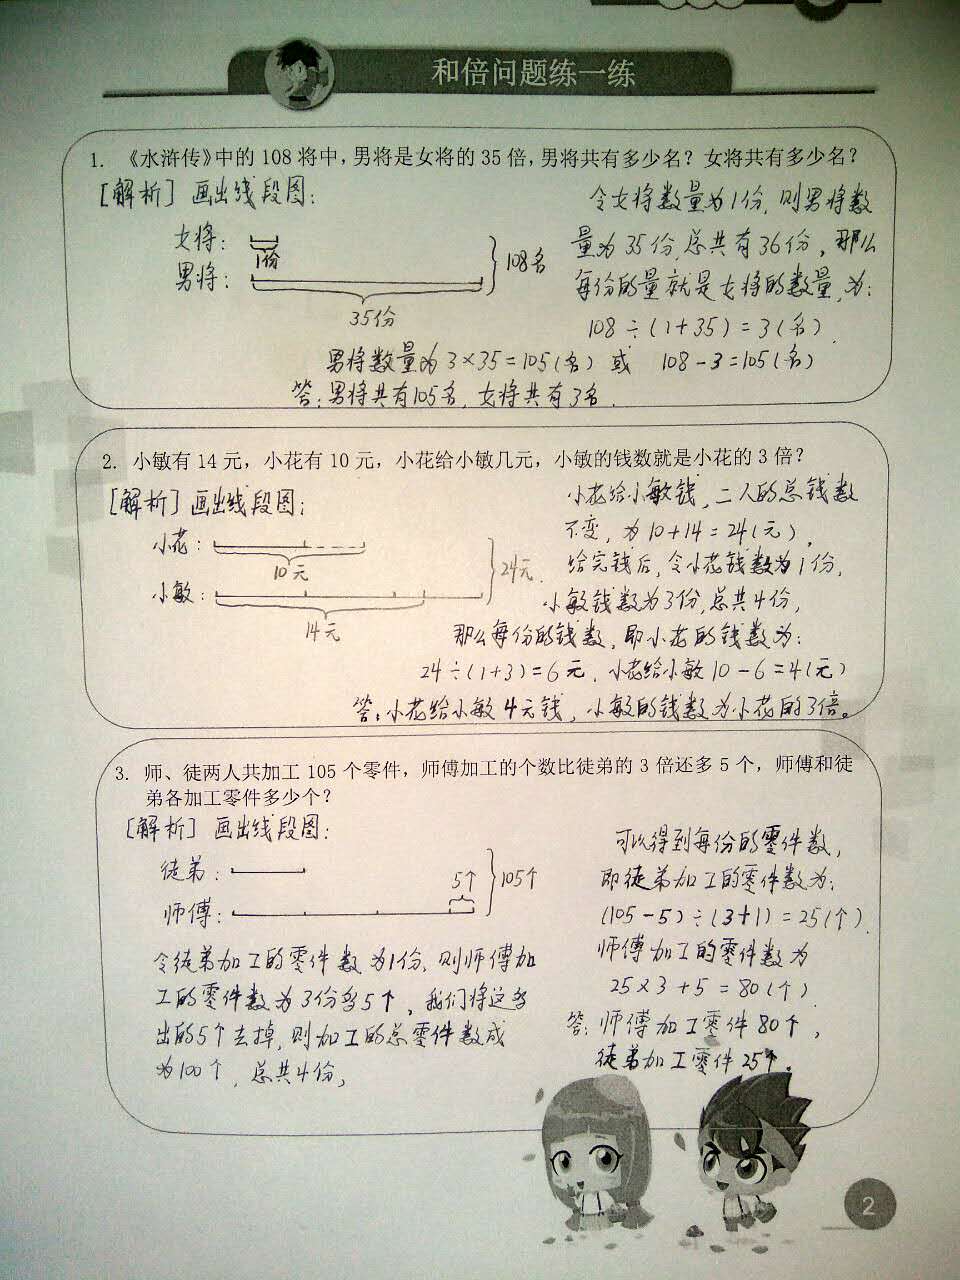 和倍问题练一练
1. 《水浒传》中的 108 将中，男将是女将的 35 倍，男将共有多少名？女将共有多少名？
[解析] 画出线段图：
女将：
1份
男将：
35份
108名
令女将数量为1份，则男将数
量为35份，总共有36份，那么
每份的量就是女将的数量，为：
108÷(1+35)=3(名)
男将数量为 3×35=105(名) 或 108-3=105(名)
答：男将共有105名，女将共有3名.
2. 小敏有 14 元，小花有 10 元，小花给小敏几元，小敏的钱数就是小花的 3 倍？
[解析] 画出线段图：
小花：
10元
小敏：
14元
24元
小花给小敏钱，二人的总钱数
不变，为10+14=24(元)，
给完钱后，令小花钱数为1份，
小敏钱数为3份，总共4份，
那么每份的钱数，即小花的钱数为：
24÷(1+3)=6元，小花给小敏 10-6=4(元)
答：小花给小敏4元钱，小敏的钱数为小花的3倍。
3. 师、徒两人共加工 105 个零件，师傅加工的个数比徒弟的 3 倍还多 5 个，师傅和徒
弟各加工零件多少个？
[解析] 画出线段图：
徒弟：
师傅：
5个
105个
令徒弟加工的零件数为1份，则师傅加
工的零件数为3份多5个，我们将这多
出的5个去掉，则加工的总零件数成
为100个，总共4份，
可以得到每份的零件数，
即徒弟加工的零件数为：
(105-5)÷(3+1)=25(个)
师傅加工的零件数为
25×3+5=80(个)
答：师傅加工零件80个，
徒弟加工零件25个。
2